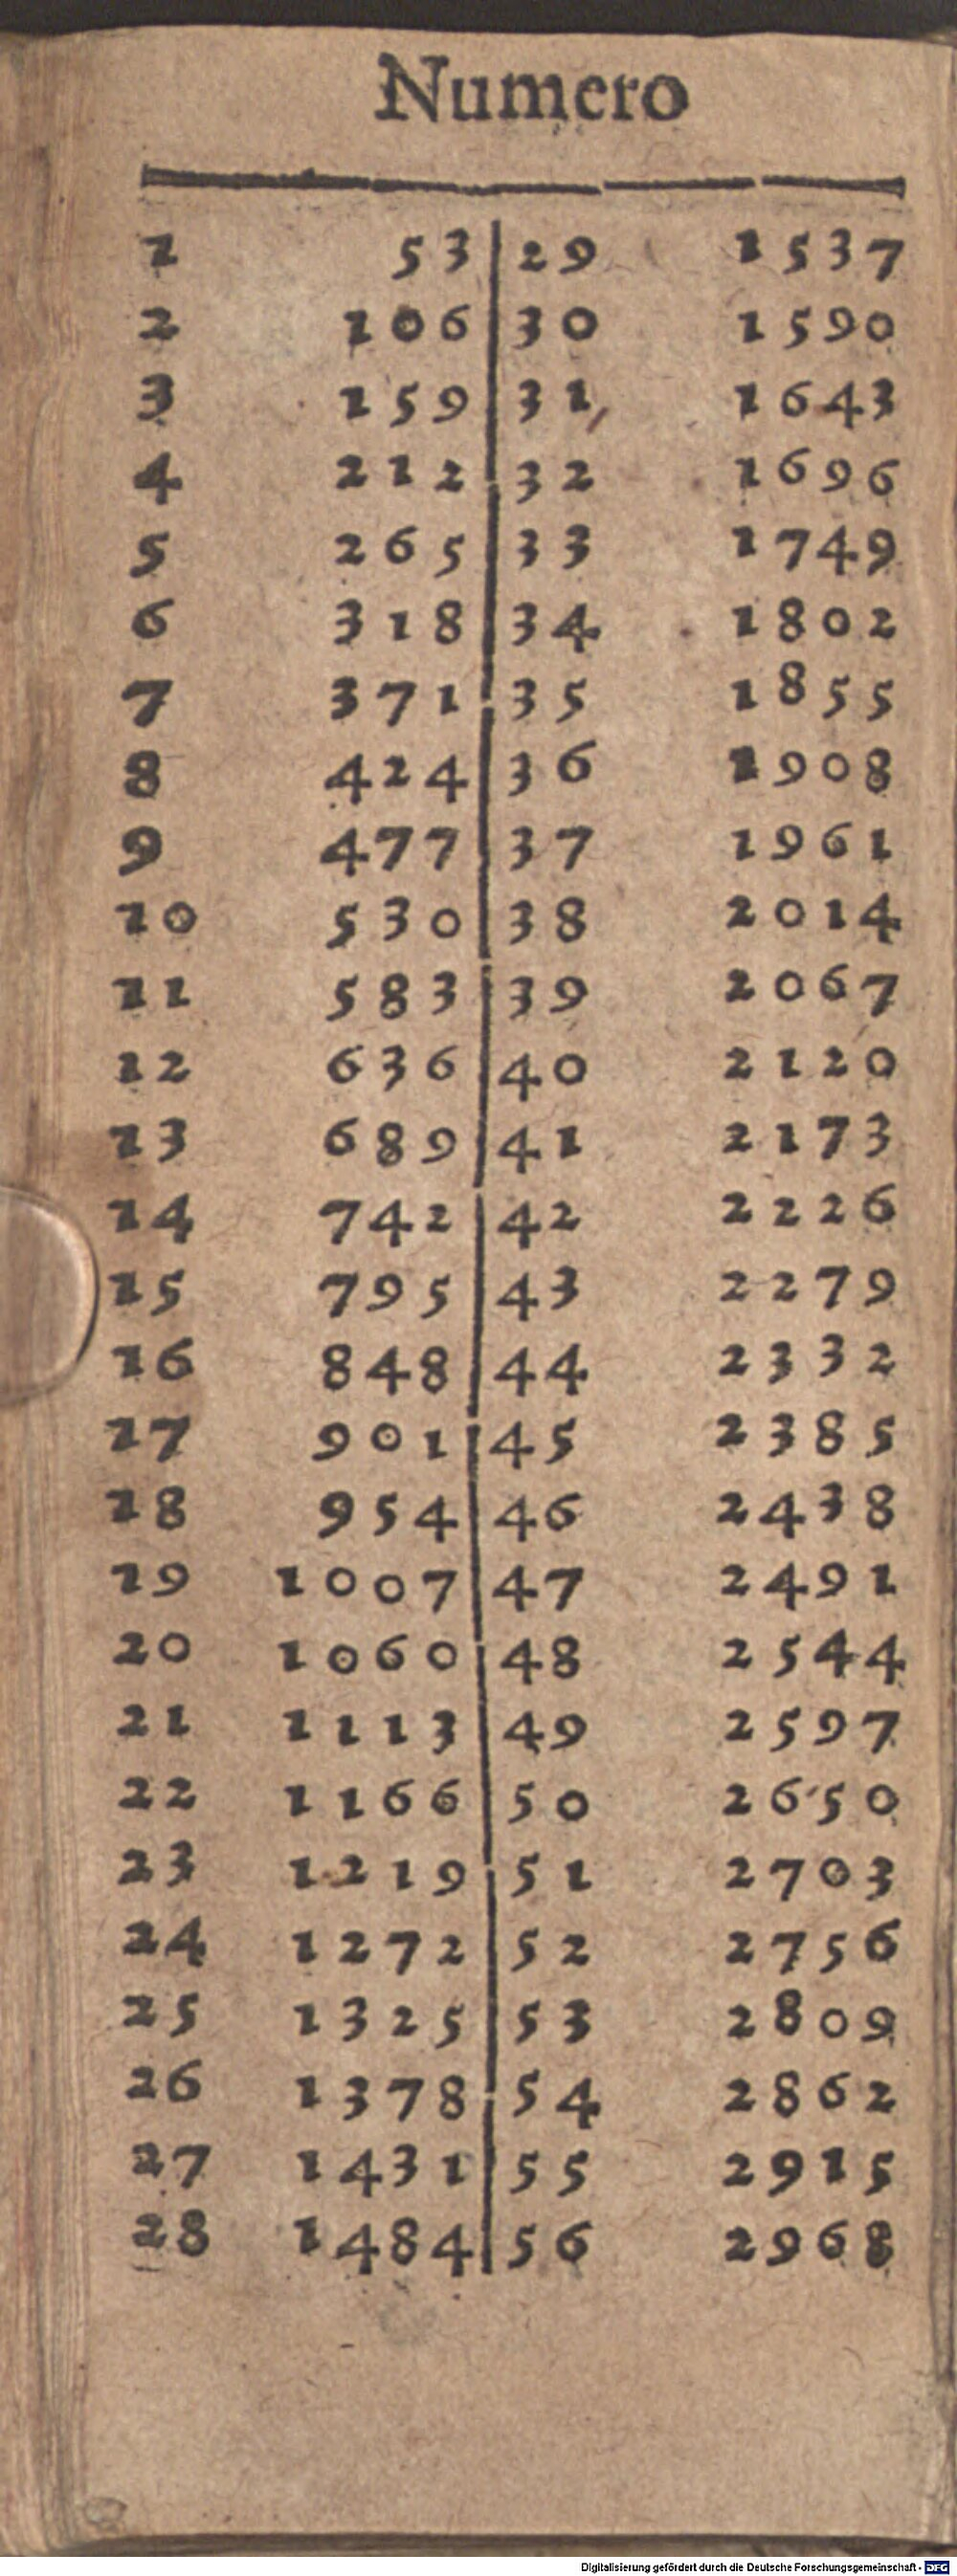 Numero
1 53 29 1537
2 106 30 1590
3 159 31 1643
4 212 32 1696
5 265 33 1749
6 318 34 1802
7 371 35 1855
8 424 36 1908
9 477 37 1961
10 530 38 2014
11 583 39 2067
12 636 40 2120
13 689 41 2173
14 742 42 2226
15 795 43 2279
16 848 44 2332
17 901 45 2385
18 954 46 2438
19 1007 47 2491
20 1060 48 2544
21 1113 49 2597
22 1166 50 2650
23 1219 51 2703
24 1272 52 2756
25 1325 53 2809
26 1378 54 2862
27 1431 55 2915
28 1484 56 2968
Digitalisierung gefördert durch die Deutsche Forschungsgemeinschaft - DFG